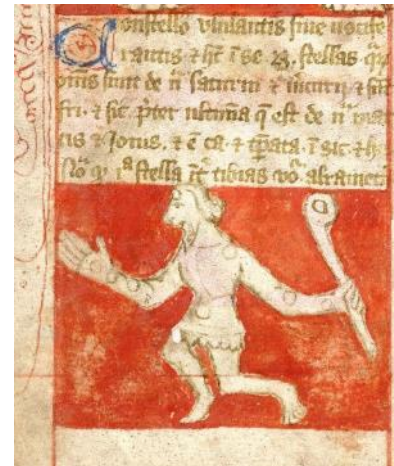 Constello ululantis siue uocife
rantis & hȝ ī se 23. stellas q̄
om̄s sunt de nͣ saturni & m̄curij & sūt
fri. & sic. p̄ter ultimā q̄ est de nͣ mar
tis & Jouis. & ē ca. & tp̄ata. ī sic. & h
stella iͭ tibias uoͬ